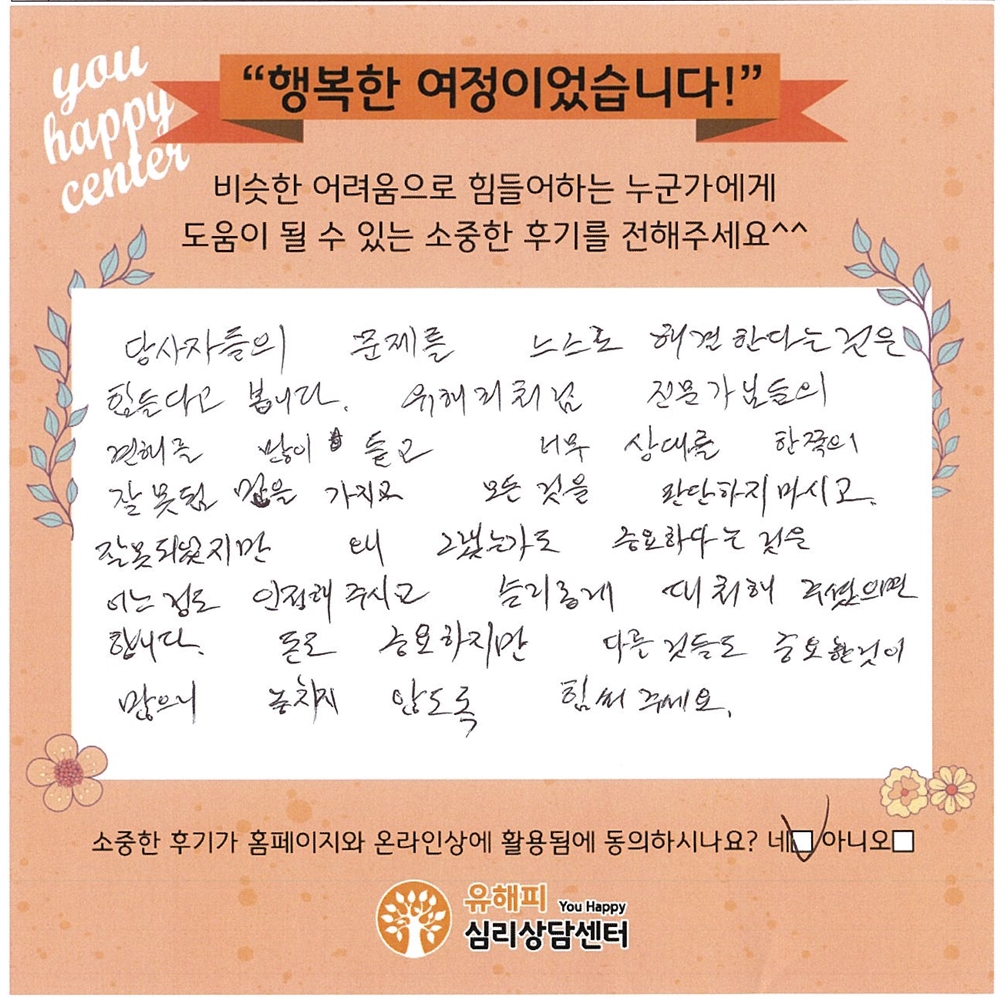 you
happy
center
“행복한 여정이었습니다!”
비슷한 어려움으로 힘들어하는 누군가에게
도움이 될 수 있는 소중한 후기를 전해주세요^^
당사자들의 문제를 느스로 해결한다는 것은
힘들다고 봅니다. 전문가님들의
견해를 많이 듣고 너무 상대를 한쪽의
잘못된 가지고 모든 것을 판단하지 마시고.
잘못되었지만 왜 그랬는가도 중요하다는 것은
어느 정도 인정해 주시고 슬기롭게 대처해 주셨으면
합니다. 돈도 중요하지만 다른 것들도 중요한것이
많으니 놓치지 않도록 힘써 주세요.
소중한 후기가 홈페이지와 온라인상에 활용됨에 동의하시나요? 네 아니오
유해피 You Happy
심리상담센터